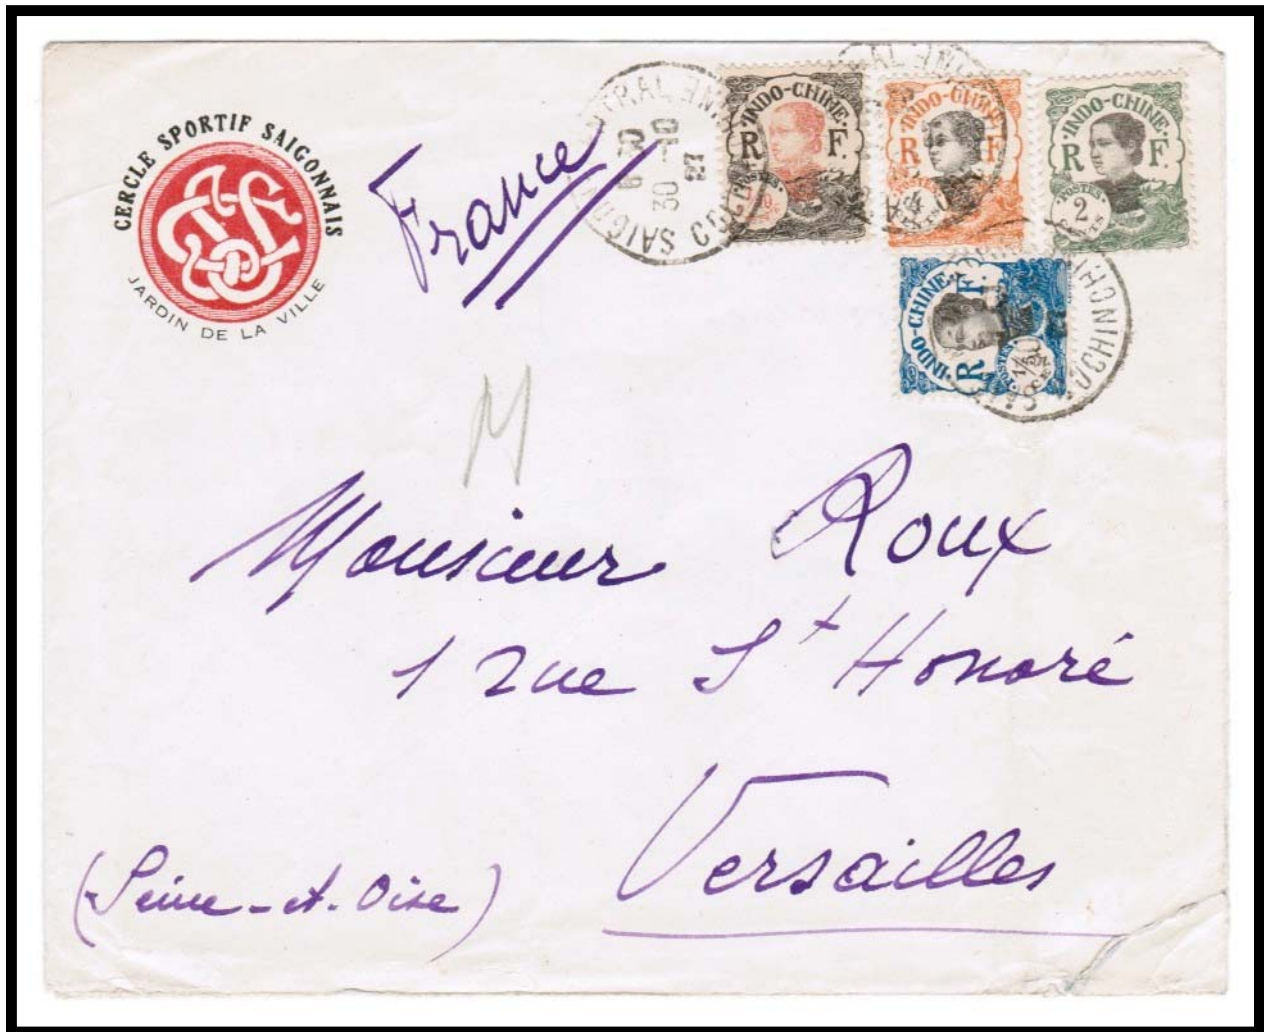 CERCLE SPORTIF SAIGONNAIS
JARDIN DE LA VILLE
France
SAIGON CENTRAL
30 -10
23
INDO-CHINE
R F.
POSTES
1/10
INDO-CHINE
R F
POSTES
4
INDO-CHINE
R F.
POSTES
2
CENTS
INDO-CHINE
R F.
POSTES
COCHINCHINE
Monsieur Roux
1 rue St Honoré
Versailles
(Seine-et-Oise)